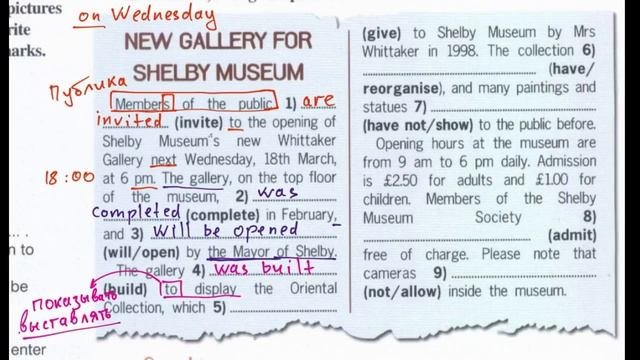 pictures
rite
marks.
on Wednesday
NEW GALLERY FOR
SHELBY MUSEUM
Публика
Members of the public 1) are
invited (invite) to the opening of
Shelby Museum's new Whittaker
Gallery next Wednesday, 18th March,
18:00
at 6 pm. The gallery, on the top floor
of the museum, 2) was
completed (complete) in February,
and 3) will be opened
(will/open) by the Mayor of Shelby.
The gallery 4) was built
(build) to display the Oriental
Collection, which 5)
показывать
выставлять
n to
be
enter
(give) to Shelby Museum by Mrs
Whittaker in 1998. The collection 6)
(have/
reorganise), and many paintings and
statues 7)
(have not/show) to the public before.
Opening hours at the museum are
from 9 am to 6 pm daily. Admission
is £2.50 for adults and £1.00 for
children. Members of the Shelby
Museum Society 8)
(admit)
free of charge. Please note that
cameras 9)
(not/allow) inside the museum.